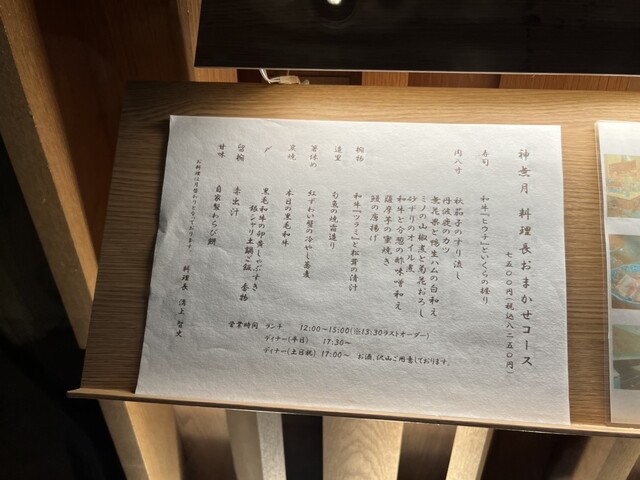 神無月 料理長おまかせコース
七五〇〇円(税込八二五〇円)
寿司
和牛『ヒウチ』といくらの握り
肉八寸
秋茄子のすり流し
丹波鹿のカツ
無花果と鴨生ハムの白和え
ミノの山椒煮と菊花おろし
砂ずりのオイル煮
和牛と分葱の酢味噌和え
薩摩芋の蜜焼き
鰻の唐揚げ
椀物
和牛『ツラミ』と松茸の清汁
造里
旬魚の焼霜造り
箸休め
紅ずわい蟹の冷やし蕎麦
炭焼
本日の黒毛和牛
〆
黒毛和牛の卵黄しゃぶすき
銀シャリ土鍋ご飯 香物
留椀
赤出汁
甘味
自家製わらび餅
お料理は月替わりとなっております。
料理長 溝上 智史
営業時間 ランチ 12:00～15:00(※13:30ラストオーダー)
ディナー(平日) 17:30～
ディナー(土日祝) 17:00～ お酒、沢山ご用意しております。